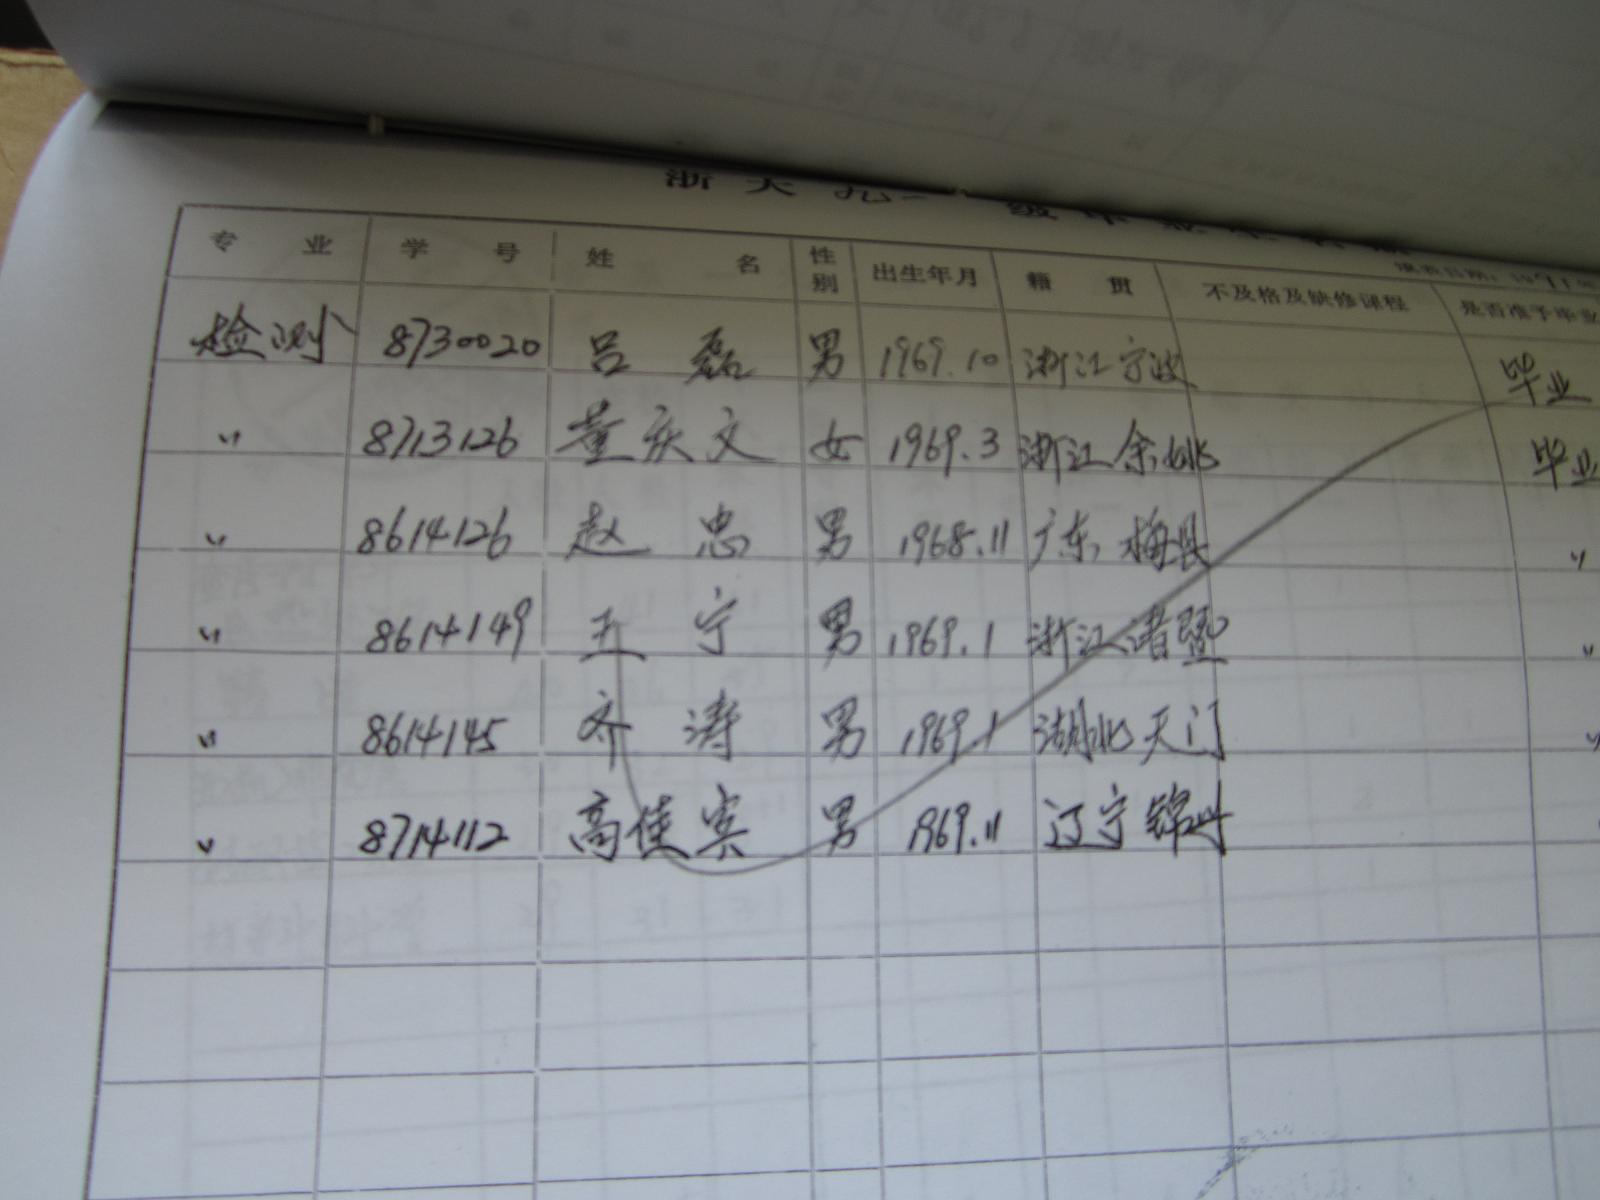 浙大九一级毕业生名册
专业 学号 姓名 性别 出生年月 籍贯 不及格及缺修课程 是否准予毕业
检测 8730020 吕磊 男 1969.10 浙江宁波 毕业
〃 8713126 董庆文 女 1969.3 浙江余姚 毕业
〃 8614126 赵忠 男 1968.11 广东梅县 〃
〃 8614149 王宁 男 1969.1 浙江诸暨 〃
〃 8614145 齐涛 男 1969.1 湖北天门 〃
〃 8714112 高佳宾 男 1969.11 辽宁锦州